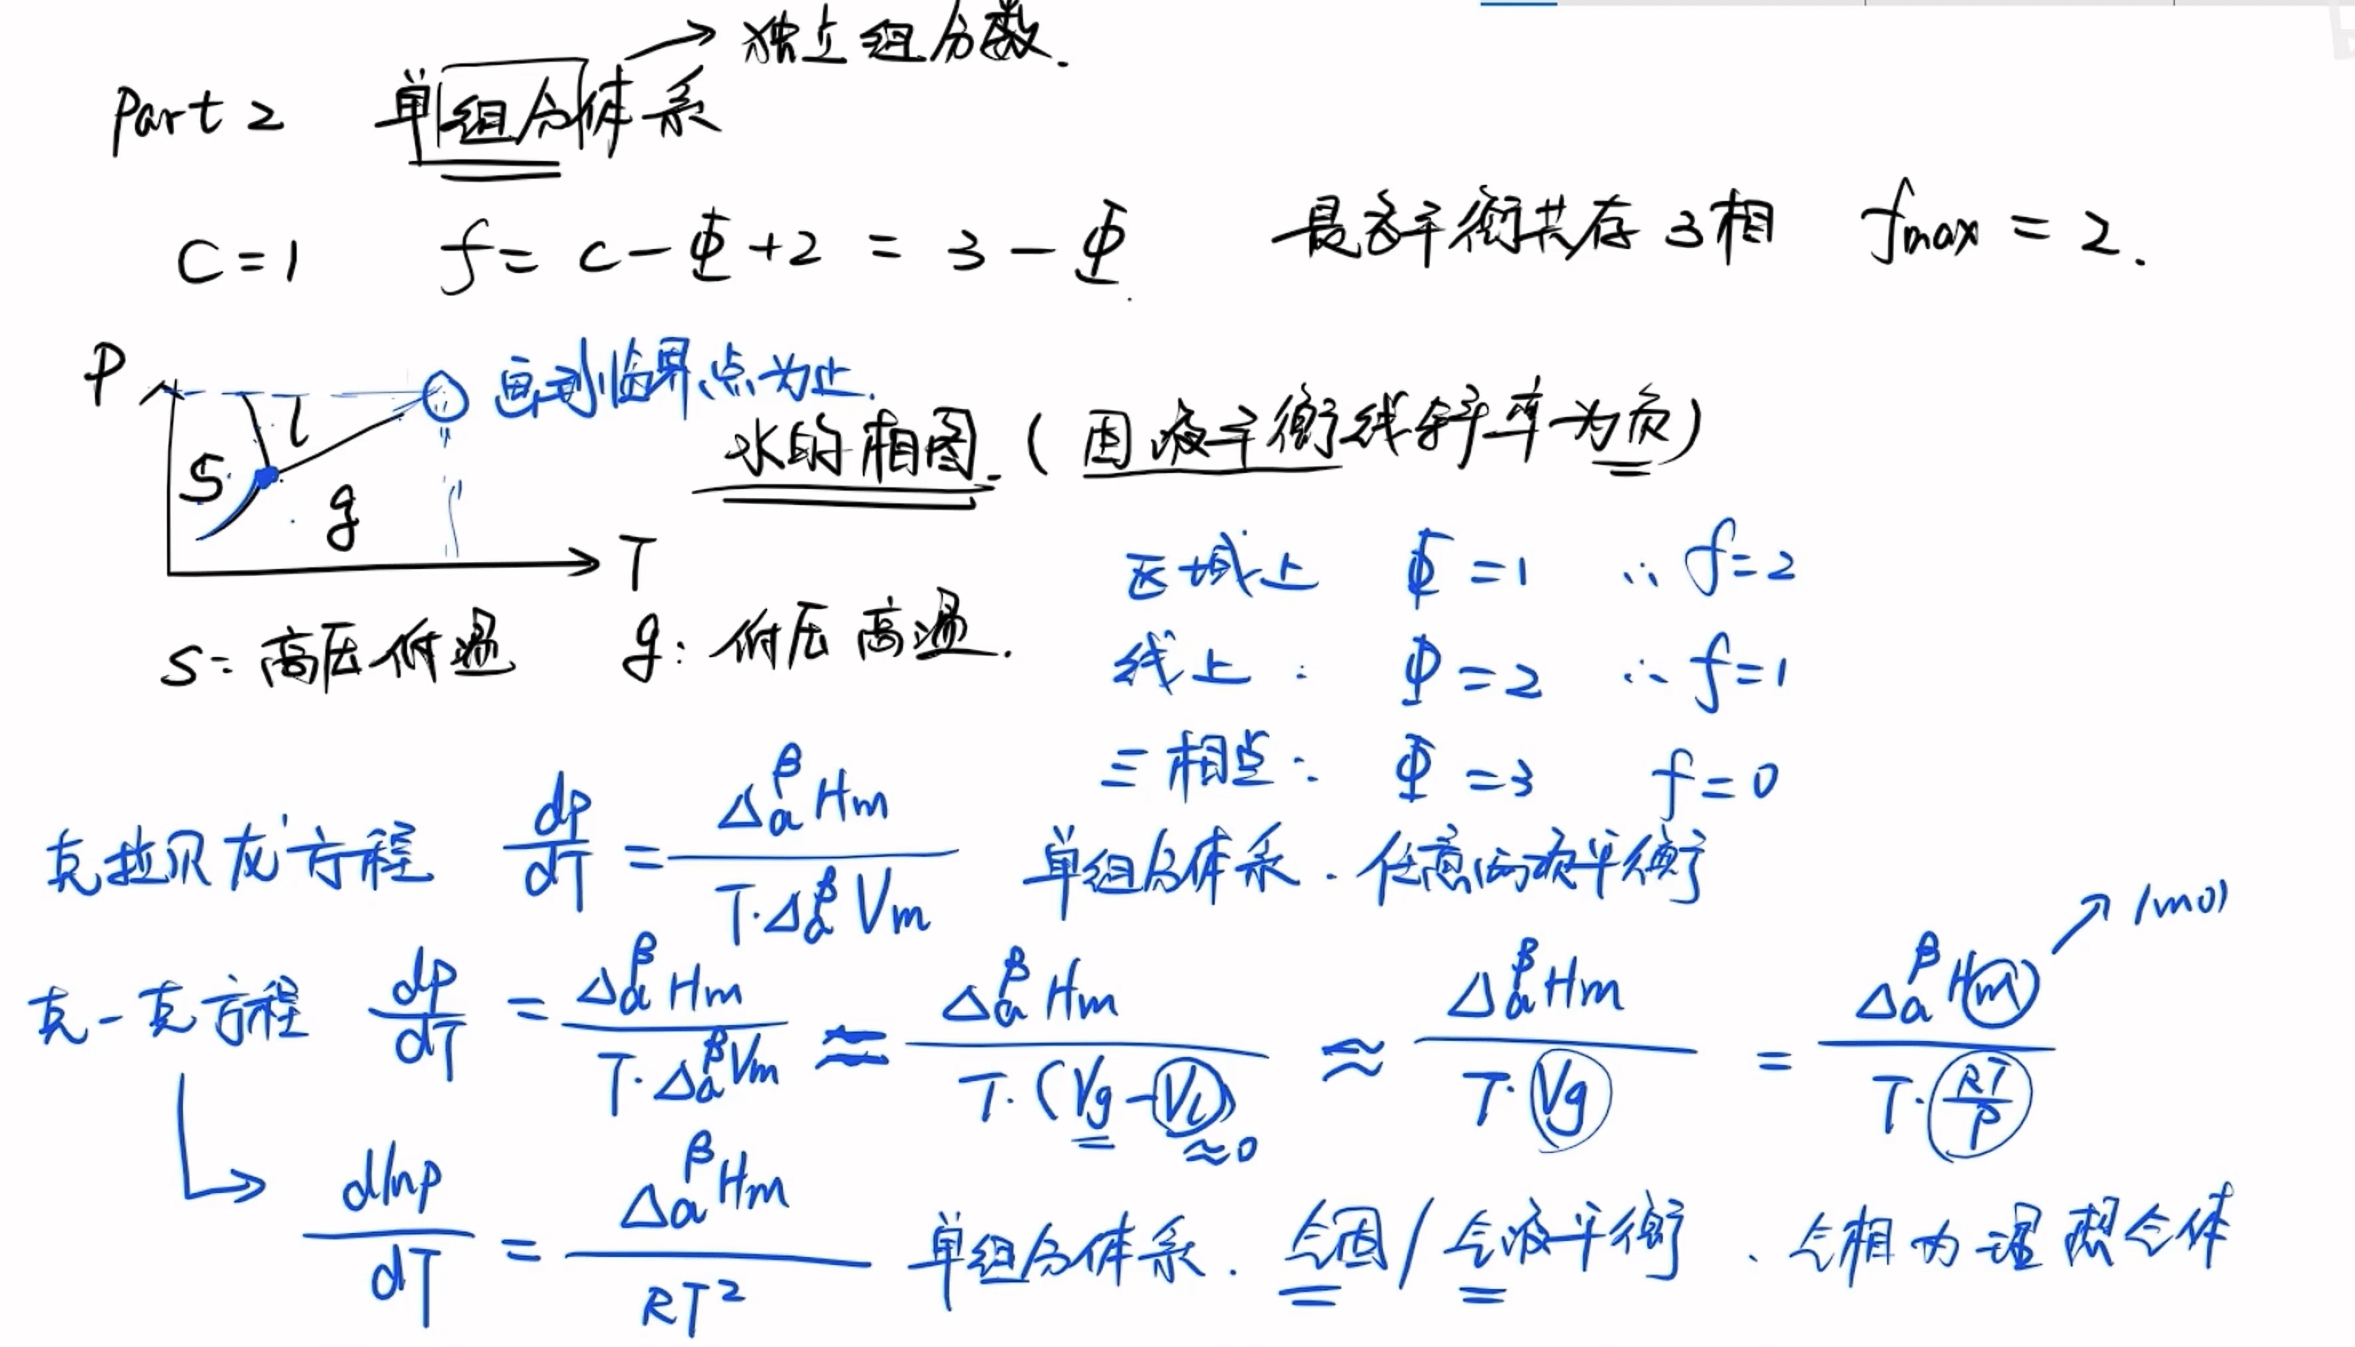 Part 2 单组分体系 → 独立组分数.
C=1 f= C-Φ+2 = 3-Φ 最多平衡共存3相 fmax = 2.
P
画到临界点为止.
S l g
T
水的相图.(固液平衡线斜率为负)
S: 高压低温 g: 低压高温.
区域上 Φ=1 ∴ f=2
线上: Φ=2 ∴ f=1
三相点: Φ=3 f=0
克拉贝龙方程 dp/dT = Δ_α^β Hm / (T·Δ_α^β Vm) 单组分体系.任意两项平衡
克-克方程 dp/dT = Δ_α^β Hm / (T·Δ_α^β Vm) ≈ Δ_α^β Hm / (T·(Vg-Vl)) ≈ Δ_α^β Hm / (T·Vg) = Δ_α^β Hm / (T·RT/P) ↗ 1mol
≈0
↳ dlnp/dT = Δ_α^β Hm / RT² 单组分体系.气固/气液平衡、气相为理想气体